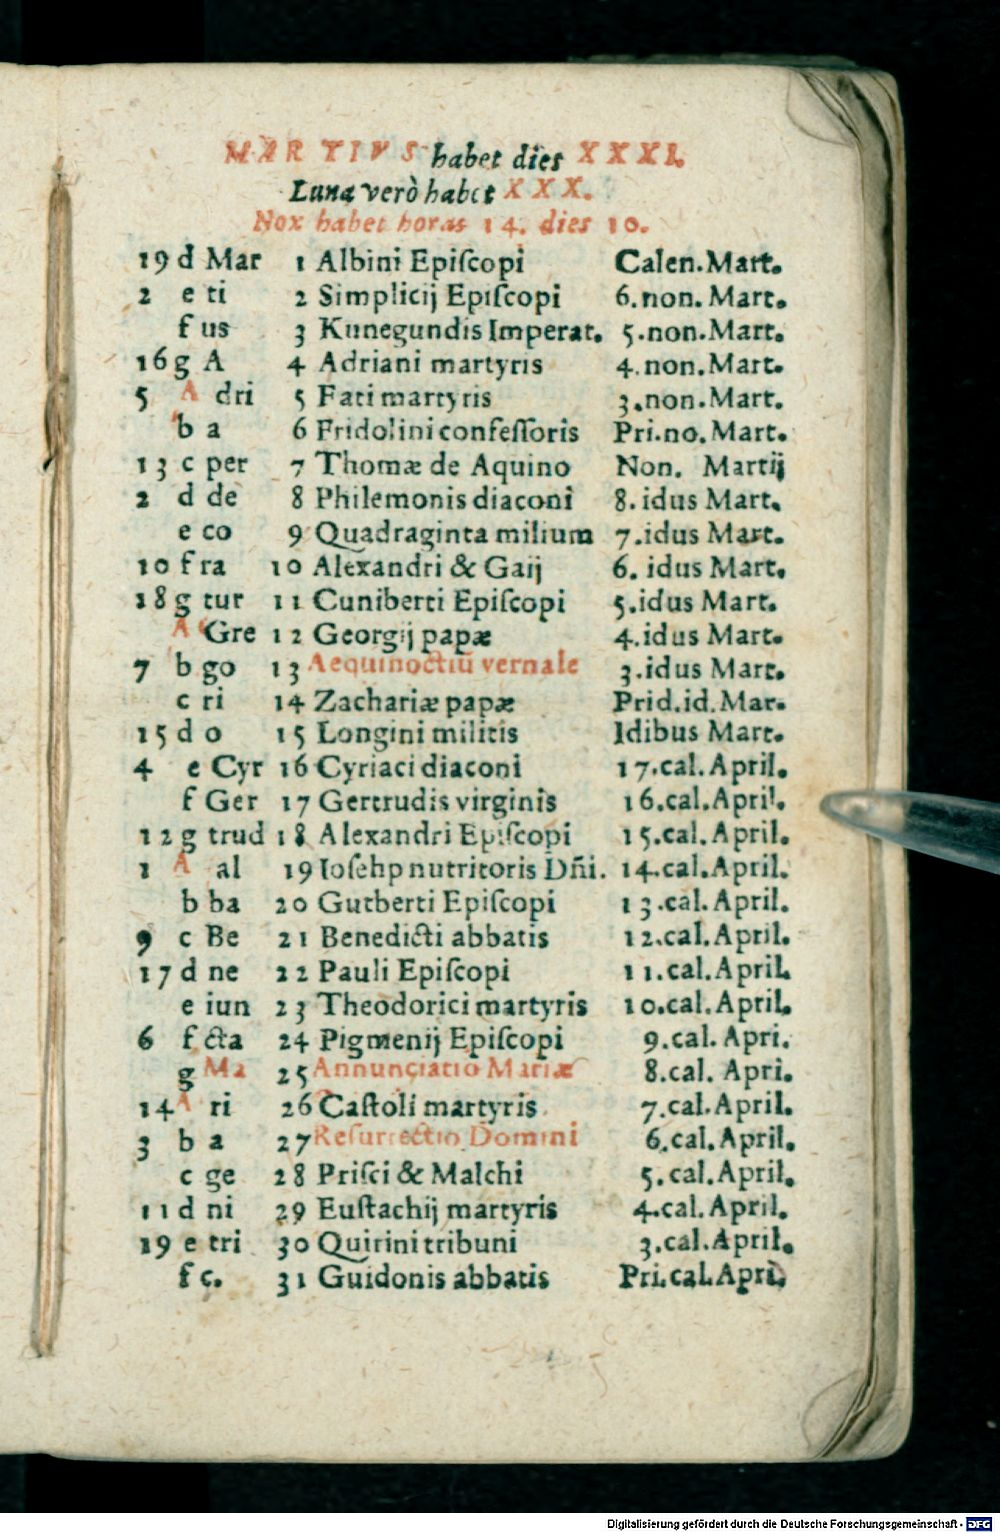 MARTIVS habet dies XXXI.
Luna verò habet XXX.
Nox habet horas 14. dies 10.
19 d Mar 1 Albini Epiſcopi Calen.Mart.
2 e ti 2 Simplicij Epiſcopi 6.non.Mart.
f us 3 Kunegundis Imperat. 5.non.Mart.
16 g A 4 Adriani martyris 4.non.Mart.
5 A dri 5 Fati martyris 3.non.Mart.
b a 6 Fridolini confeſſoris Pri.no.Mart.
13 c per 7 Thomæ de Aquino Non. Martij
2 d de 8 Philemonis diaconi 8.idus Mart.
e co 9 Quadraginta milium 7.idus Mart.
10 f ra 10 Alexandri & Gaij 6.idus Mart.
18 g tur 11 Cuniberti Epiſcopi 5.idus Mart.
A Gre 12 Georgij papæ 4.idus Mart.
7 b go 13 Aequinoctiū vernale 3.idus Mart.
c ri 14 Zachariæ papæ Prid.id.Mar.
15 d o 15 Longini militis Idibus Mart.
4 e Cyr 16 Cyriaci diaconi 17.cal.April.
f Ger 17 Gertrudis virginis 16.cal.April.
12 g trud 18 Alexandri Epiſcopi 15.cal.April.
1 A al 19 Ioſehp nutritoris Dñi. 14.cal.April.
b ba 20 Gutberti Epiſcopi 13.cal.April.
9 c Be 21 Benedicti abbatis 12.cal.April.
17 d ne 22 Pauli Epiſcopi 11.cal.April.
e iun 23 Theodorici martyris 10.cal.April.
6 f cta 24 Pigmenij Epiſcopi 9.cal.Apri.
g Ma 25 Annunciatio Mariæ 8.cal.Apri.
14 A ri 26 Caſtoli martyris 7.cal.April.
3 b a 27 Reſurrectio Domini 6.cal.April.
c ge 28 Priſci & Malchi 5.cal.April.
11 d ni 29 Euſtachij martyris 4.cal.April.
19 e tri 30 Quirini tribuni 3.cal.April.
f c. 31 Guidonis abbatis Pri.cal.Apri.
Digitalisierung gefördert durch die Deutsche Forschungsgemeinschaft - DFG